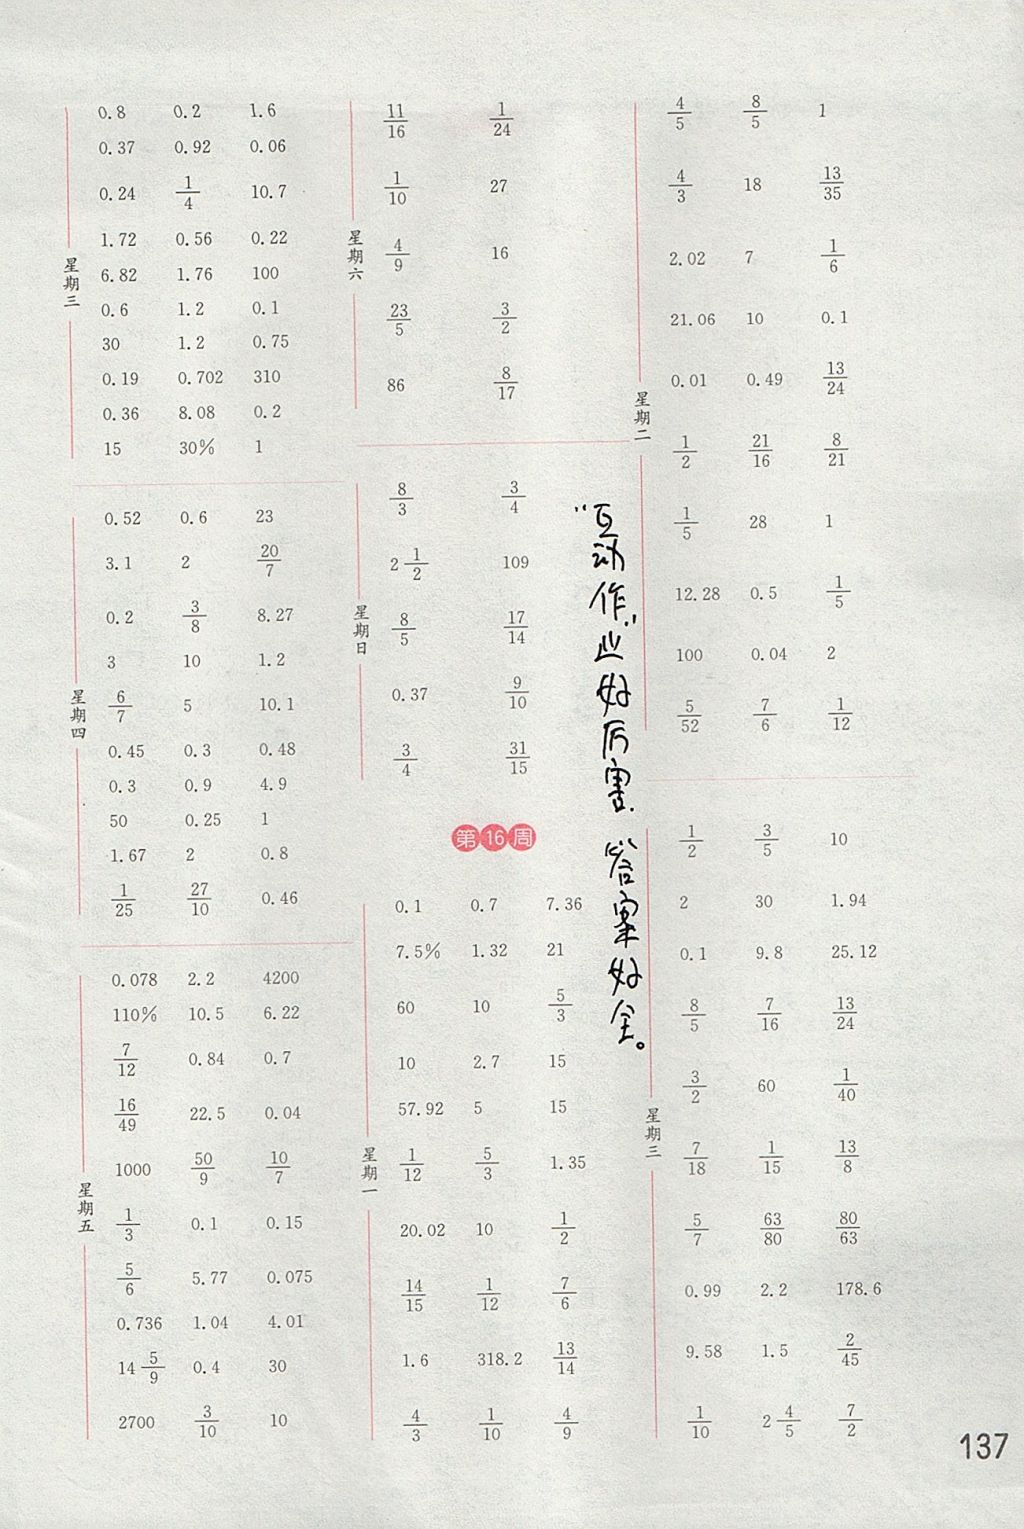 星期三
0.8 0.2 1.6
0.37 0.92 0.06
0.24 1/4 10.7
1.72 0.56 0.22
6.82 1.76 100
0.6 1.2 0.1
30 1.2 0.75
0.19 0.702 310
0.36 8.08 0.2
15 30% 1
星期四
0.52 0.6 23
3.1 2 20/7
0.2 3/8 8.27
3 10 1.2
6/7 5 10.1
0.45 0.3 0.48
0.3 0.9 4.9
50 0.25 1
1.67 2 0.8
1/25 27/10 0.46
星期五
0.078 2.2 4200
110% 10.5 6.22
7/12 0.84 0.7
16/49 22.5 0.04
1000 50/9 10/7
1/3 0.1 0.15
5/6 5.77 0.075
0.736 1.04 4.01
14 5/9 0.4 30
2700 3/10 10
星期六
11/16 1/24
1/10 27
4/9 16
23/5 3/2
86 8/17
星期日
8/3 3/4
2 1/2 109
8/5 17/14
0.37 9/10
3/4 31/15
第16周
星期一
0.1 0.7 7.36
7.5% 1.32 21
60 10 5/3
10 2.7 15
57.92 5 15
1/12 5/3 1.35
20.02 10 1/2
14/15 1/12 7/6
1.6 318.2 13/14
4/3 1/10 4/9
星期二
4/5 8/5 1
4/3 18 13/35
2.02 7 1/6
21.06 10 0.1
0.01 0.49 13/24
1/2 21/16 8/21
1/5 28 1
12.28 0.5 1/5
100 0.04 2
5/52 7/6 1/12
星期三
1/2 3/5 10
2 30 1.94
0.1 9.8 25.12
8/5 7/16 13/24
3/2 60 1/40
7/18 1/15 13/8
5/7 63/80 80/63
0.99 2.2 178.6
9.58 1.5 2/45
1/10 2 4/5 7/2
“互动作”业好厉害.答案好全。
137